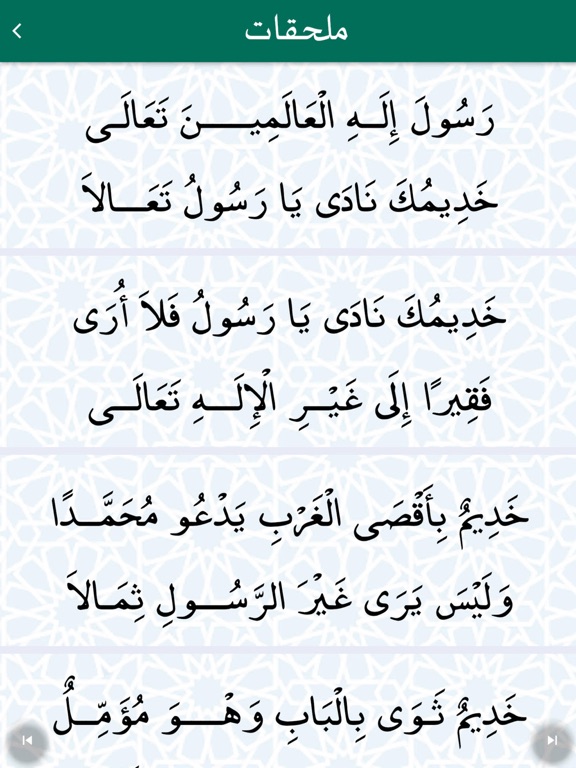 ملحقات
رَسُولَ إِلَـهِ الْعَالَمِيـــنَ تَعَالَـى
خَدِيمُكَ نَادَى يَا رَسُولُ تَعَـــالاَ
خَدِيمُكَ نَادَى يَا رَسُولُ فَلاَ أُرَى
فَقِيرًا إِلَى غَيْـــرِ الْإِلَـــهِ تَعَالَــى
خَدِيمٌ بِأَقْصَى الْغَرْبِ يَدْعُو مُحَمَّــدًا
وَلَيْسَ يَرَى غَيْرَ الرَّسُـــولِ ثِمَـالاَ
خَدِيمٌ ثَـوَى بِالْبَابِ وَهْــوَ مُؤَمِّـلٌ